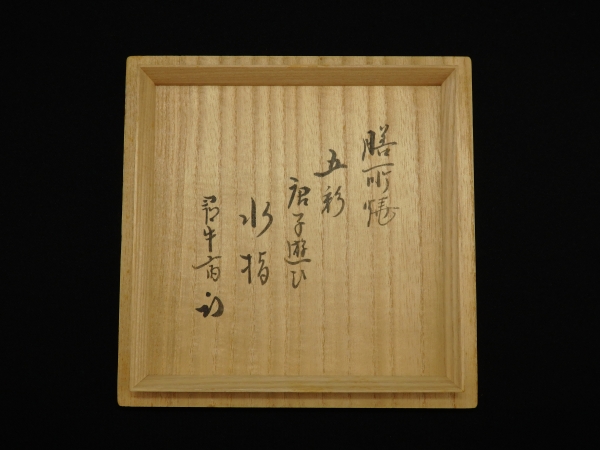 膳所焼
五彩
唐子遊び
水指
尋牛斎